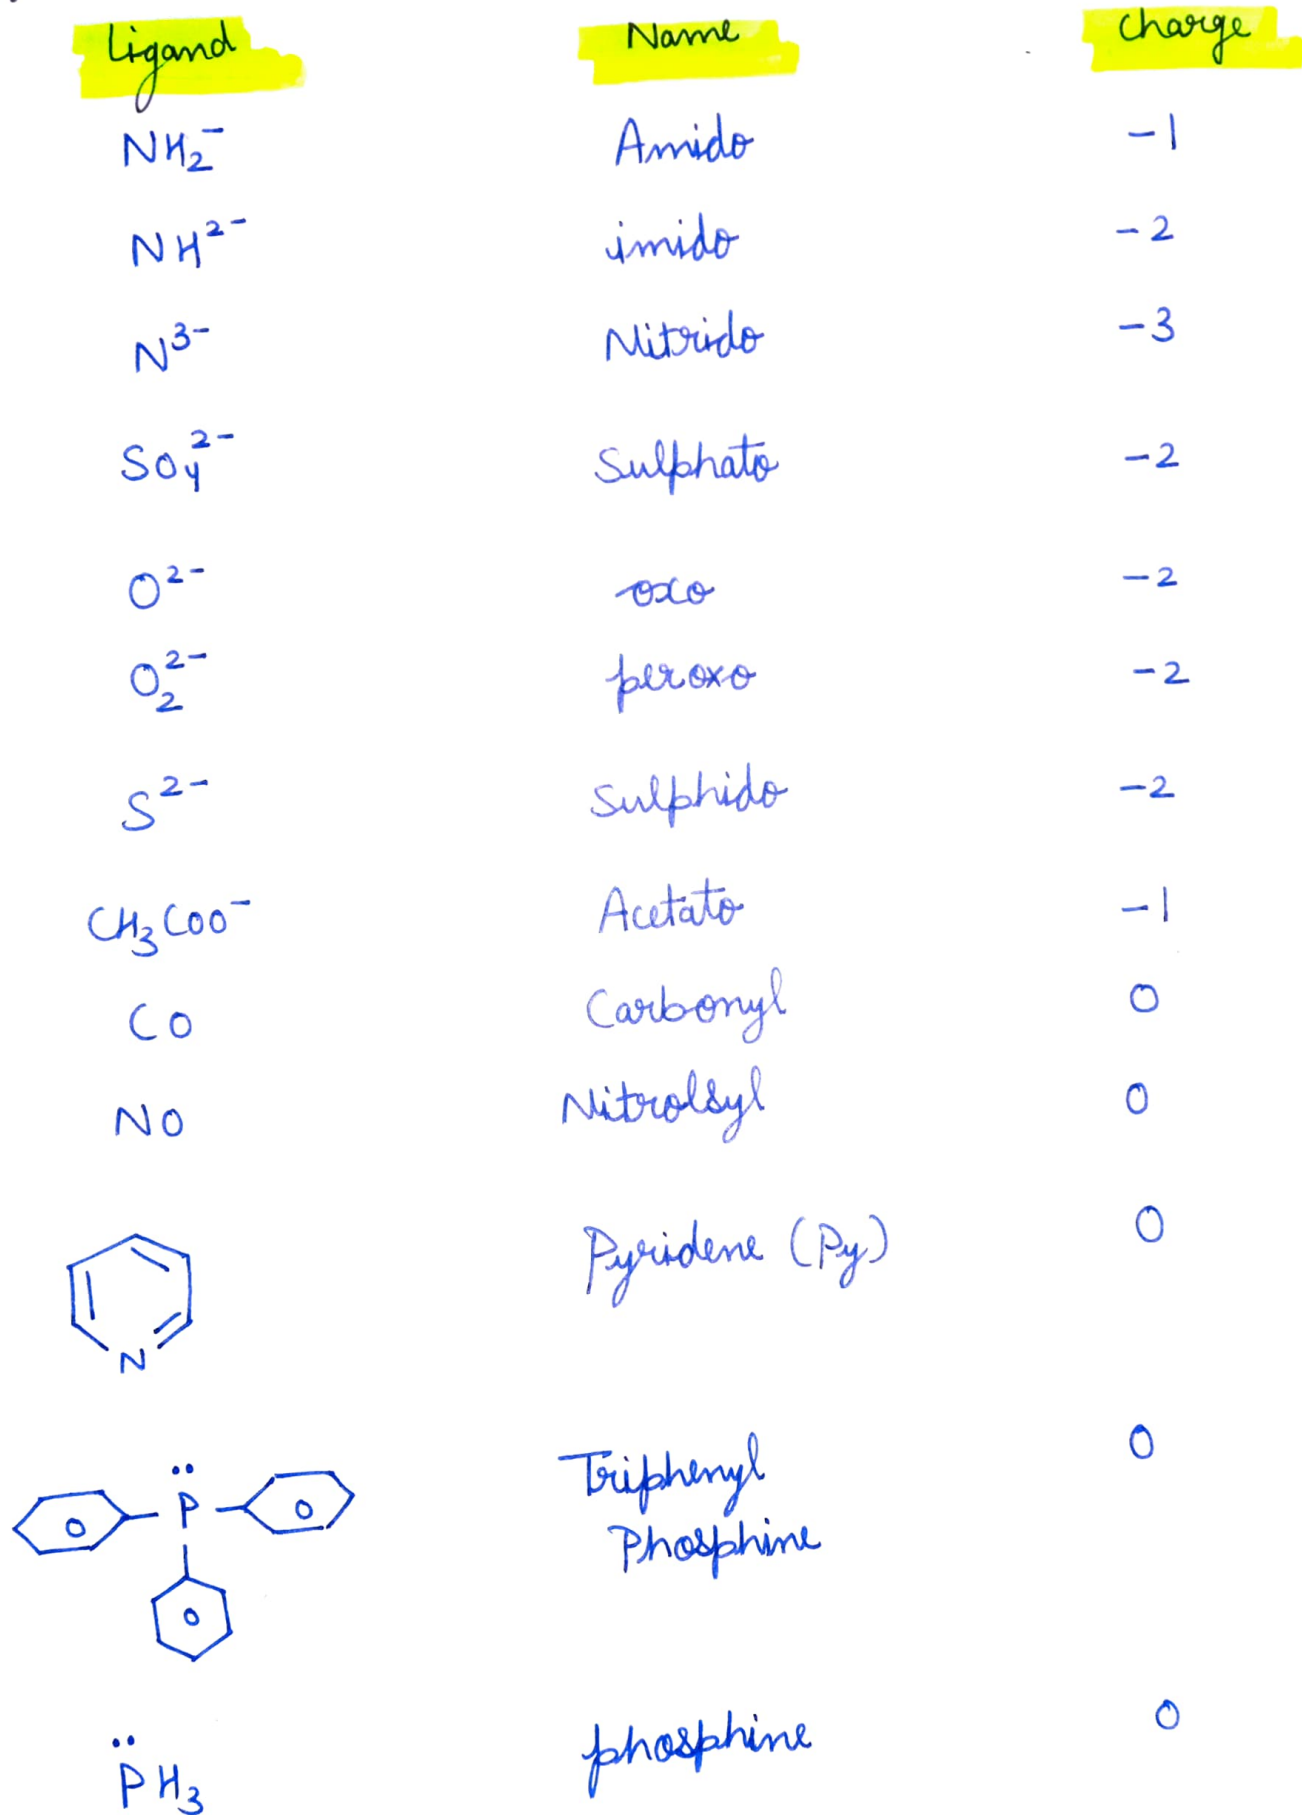 Ligand Name Charge
NH₂⁻ Amido -1
NH²⁻ imido -2
N³⁻ Nitrido -3
SO₄²⁻ Sulphato -2
O²⁻ oxo -2
O₂²⁻ peroxo -2
S²⁻ Sulphido -2
CH₃COO⁻ Acetato -1
CO Carbonyl 0
NO Nitrolsyl 0
Pyridene (Py) 0
N
Triphenyl 0
P Phosphine
PH₃ phosphine 0